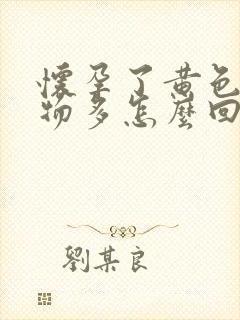 懷孕了黃色
物多怎麼回
劉某良